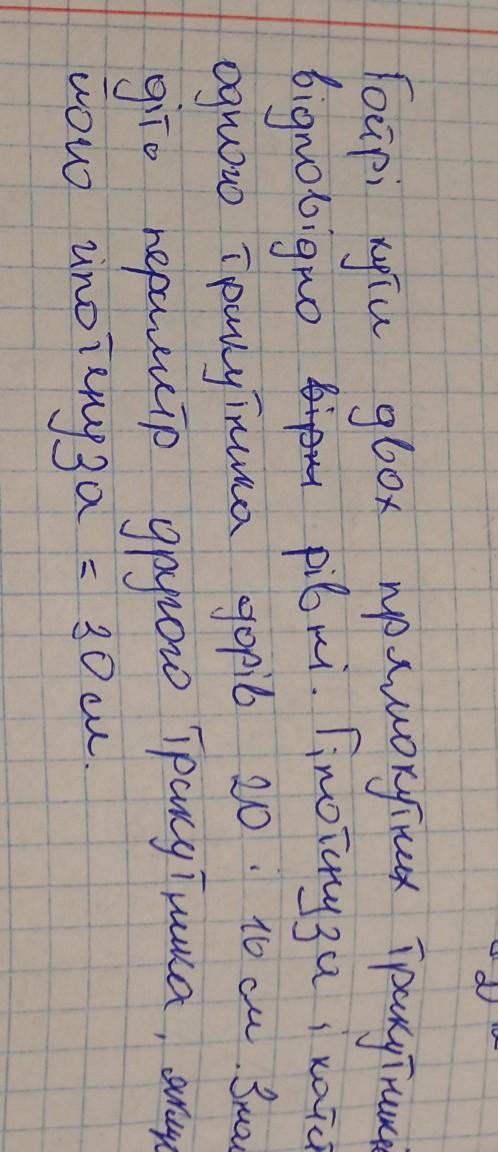 Гострі кути двох прямокутних трикутників
відповідно вірн рівні. Гіпотенуза і катет
одного трикутника дорів 20 і 16 см. Знай
діть периметр другого трикутника, якщо
його гіпотенуза = 30 см.